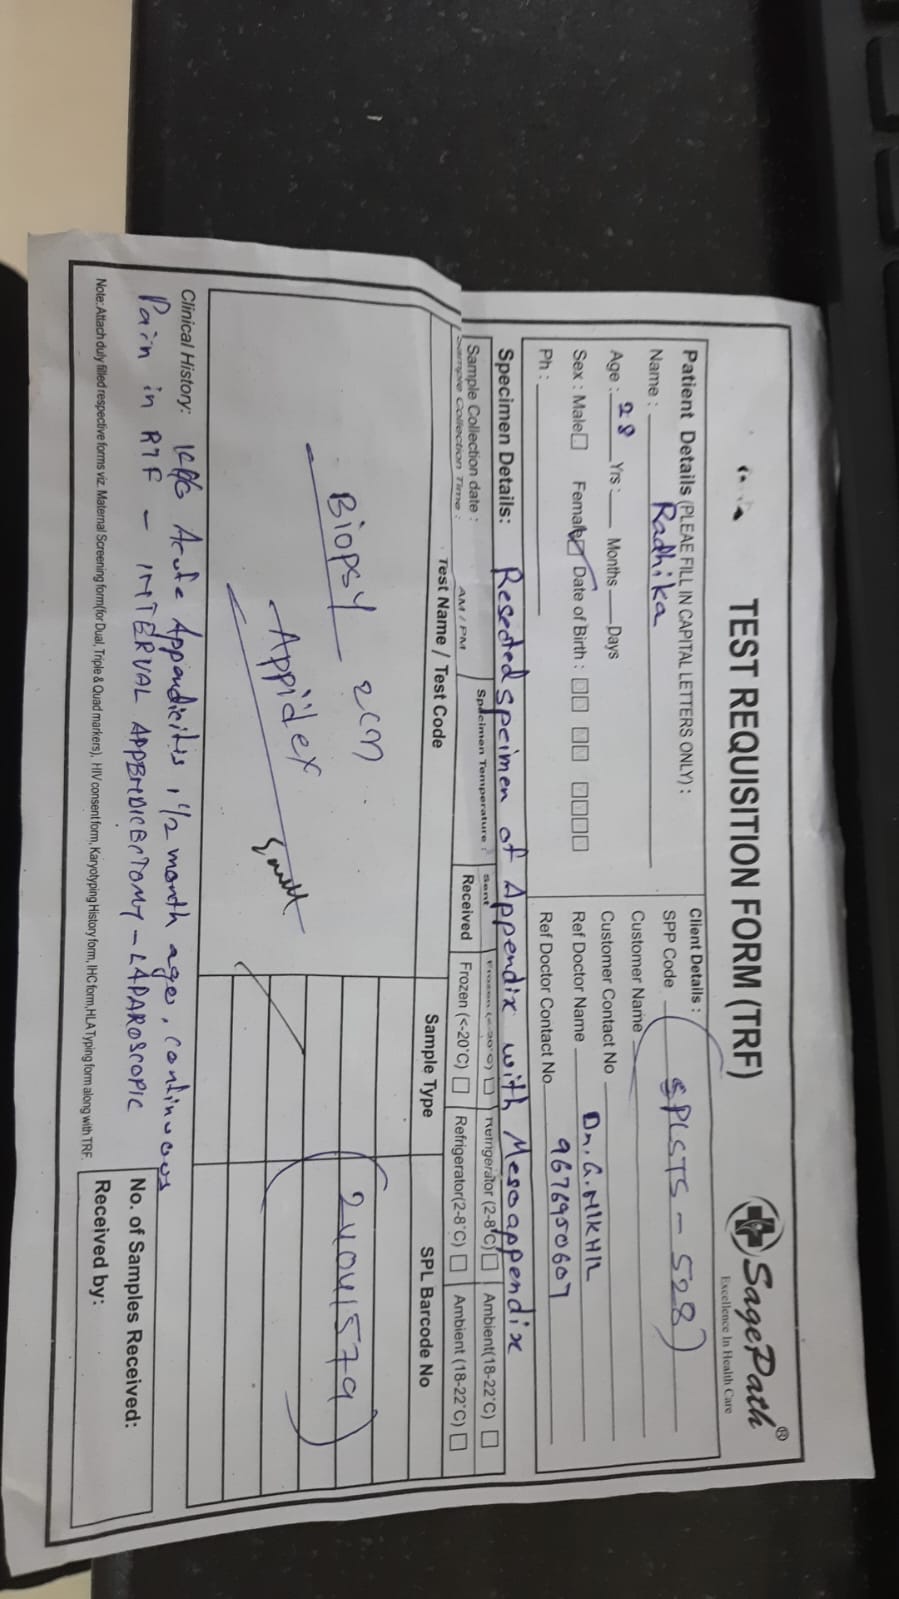 TEST REQUISITION FORM (TRF)
SagePath®
Excellence In Health Care
Patient Details (PLEAE FILL IN CAPITAL LETTERS ONLY) :
Name : Radhika
Age : 28 Yrs : Months Days
Sex : Male Female Date of Birth :
Ph :
Client Details :
SPP Code SPLSTS - 528
Customer Name
Customer Contact No
Ref Doctor Name Dr. G. NIKHIL
Ref Doctor Contact No. 9676950607
Specimen Details: Resected specimen of Appendix with Mesoappendix
Sample Collection date :
Sample Collection Time : AM / PM
Specimen Temperature :
Sent Frozen (<-20°C) Refrigerator (2-8°C) Ambient(18-22°C)
Received Frozen (<-20°C) Refrigerator(2-8°C) Ambient (18-22°C)
Test Name / Test Code Sample Type SPL Barcode No
Biopsy 2cm
Appidex
Small
24041579
Clinical History: Acute Appendicitis 1 1/2 month ago, continuous
Pain in RIF - INTERVAL APPENDICECTOMY - LAPAROSCOPIC
Note: Attach duly filled respective forms viz. Maternal Screening form(for Dual, Triple & Quad markers), HIV consent form, Karyotyping History form, IHC form, HLA Typing form along with TRF.
No. of Samples Received:
Received by: